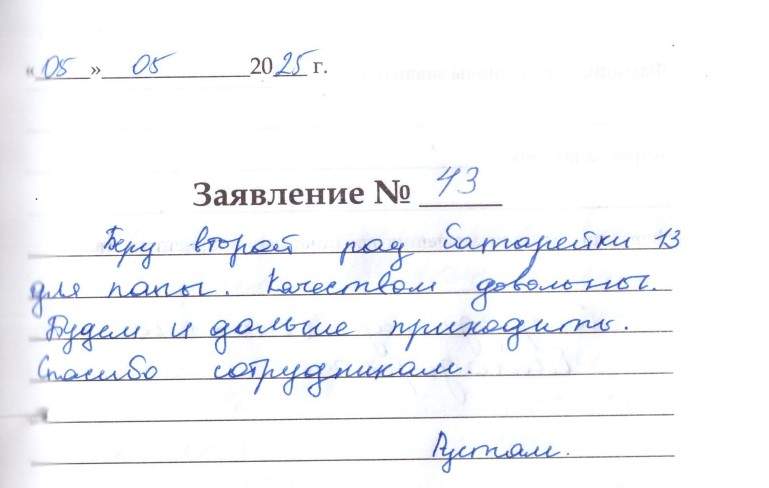 «05» 05 2025 г.
Заявление № 43
Беру второй раз батарейки 13
для папы. Качеством довольны.
Будем и дальше приходить.
Спасибо сотрудникам.
Рустам.